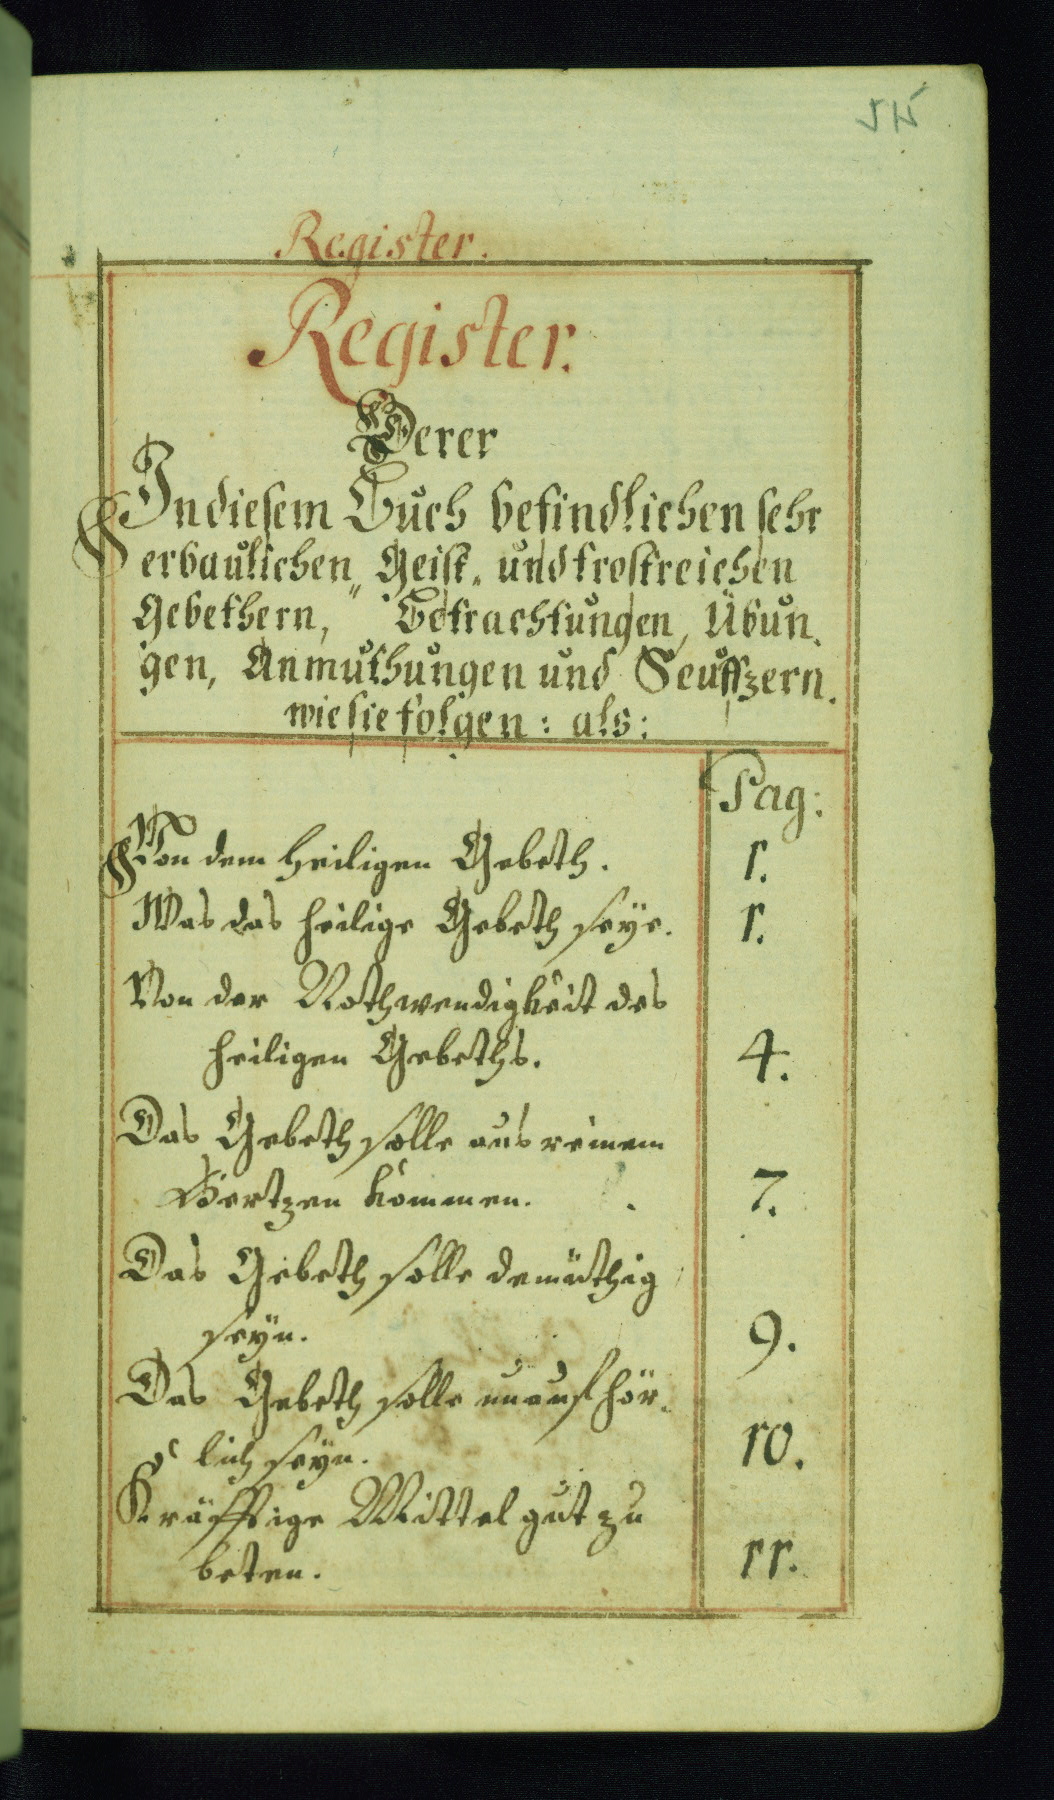 Register.
Register.
Derer
In diesem Buch befindlichen sehr
erbaulichen, Geist- und trostreichen
Gebethern, Betrachtungen, Übun-
gen, Anmuthungen und Seuffzern.
wie sie folgen: als:
Pag:
Von dem heiligen Gebeth. 1.
Was das heilige Gebeth seye. 1.
Von der Nothwendigkeit des
heiligen Gebeths. 4.
Das Gebeth solle aus reinem
Hertzen kommen. 7.
Das Gebeth solle demüthig
seyn. 9.
Das Gebeth solle unaufhör-
lich seyn. 10.
Kräfftige Mittel gut zu
beten. 11.